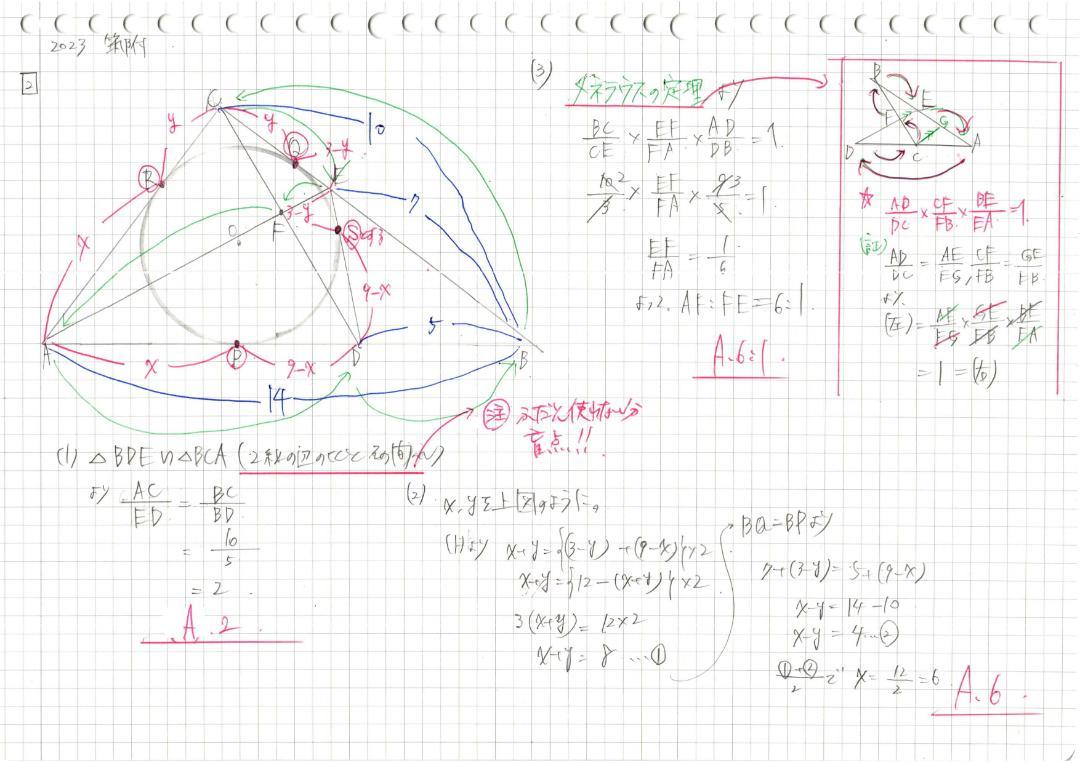 2023 筑附
2
C
y
y
10
Q
3-y
R
E
7
3-y
F
S
O
x
9-x
5
A
x
P
9-x
D
B
14
(1) △BDE∽△BCA (2組の辺の比とその間の∠)
より AC/ED = BC/BD
= 10/5
= 2
A. 2
注 ふだん使わない分
盲点!!
(2) x, yを上図のように。
(1)より x+y={(3-y)+(9-x)}×2
x+y={12-(x+y)}×2
3(x+y)=12×2
x+y= 8 …①
BQ=BPより
7+(3-y)=5+(9-x)
x-y=14-10
x-y=4…②
①+②/2で x=12/2=6
A. 6
(3) メネラウスの定理より
BC/CE × EF/FA × AD/DB = 1.
10 2/3 × EF/FA × 9 3/5 = 1.
EF/FA = 1/6
よって、AF:FE=6:1.
A. 6:1.
B
E
F
G
D
C
A
☆ AD/DC × CF/FB × BE/EA = 1.
(証)
AD/DC = AE/EG, CF/FB = GE/EB
より
(左)= AE/EG × GE/EB × BE/EA
= 1 = (右)